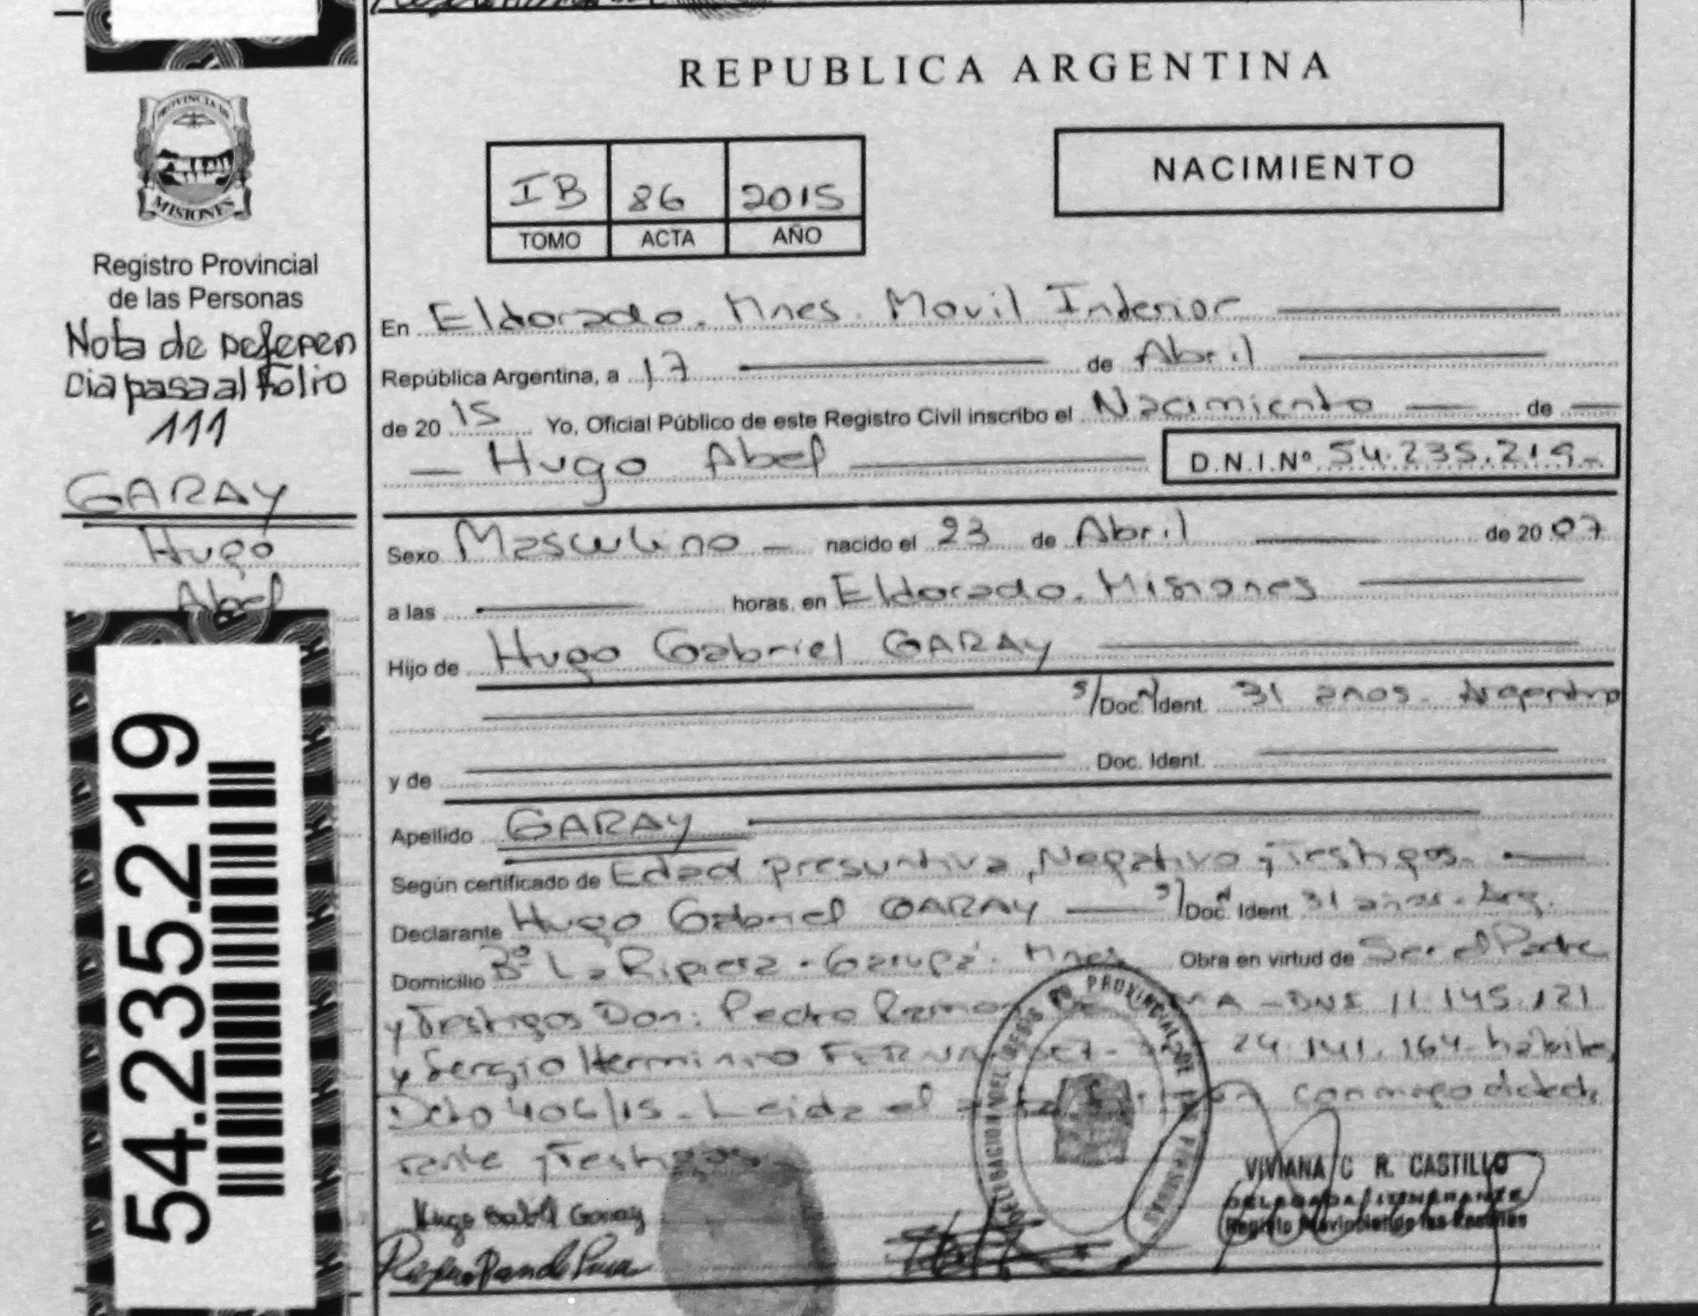 REPUBLICA ARGENTINA
PROVINCIA DE
MISIONES
Registro Provincial
de las Personas
Nota de referen
cia pasa al Folio
111
GARAY
Hugo
Abel
54.235.219
IB 86 2015
TOMO ACTA AÑO
NACIMIENTO
En Eldorado. Mnes. Movil Interior
República Argentina, a 17 de Abril
de 20 15 Yo, Oficial Público de este Registro Civil inscribo el Nacimiento de
Hugo Abel D.N.I.Nº 54.235.219.-
Sexo Masculino nacido el 23 de Abril de 20 07
a las horas, en Eldorado. Misiones
Hijo de Hugo Gabriel GARAY
s/Doc. Ident. 31 años. Argentino
y de Doc. Ident.
Apellido GARAY
Según certificado de Edad presuntiva, Negativo y Testigos.
Declarante Hugo Gabriel GARAY s/Doc. Ident. 31 años. Arg.
Domicilio Bº La Ripiera - Garupá. Mnes Obra en virtud de Ser el Padre
y Testigos Don: Pedro Ramon DNI 11.145.121
y Sergio Herminio 24.141.164 habiles,
Dcto 406/15. Leida el conmigo el decla
rante y Testigos.
Hugo Gabriel Garay
VIVIANA C R. CASTILLO
DELEGADA ITINERANTE
Registro Provincial de las Personas